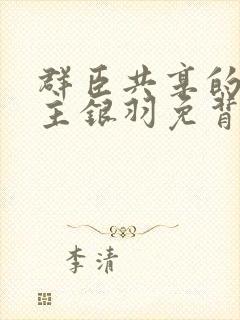 群臣共享的
主银羽免背
李清